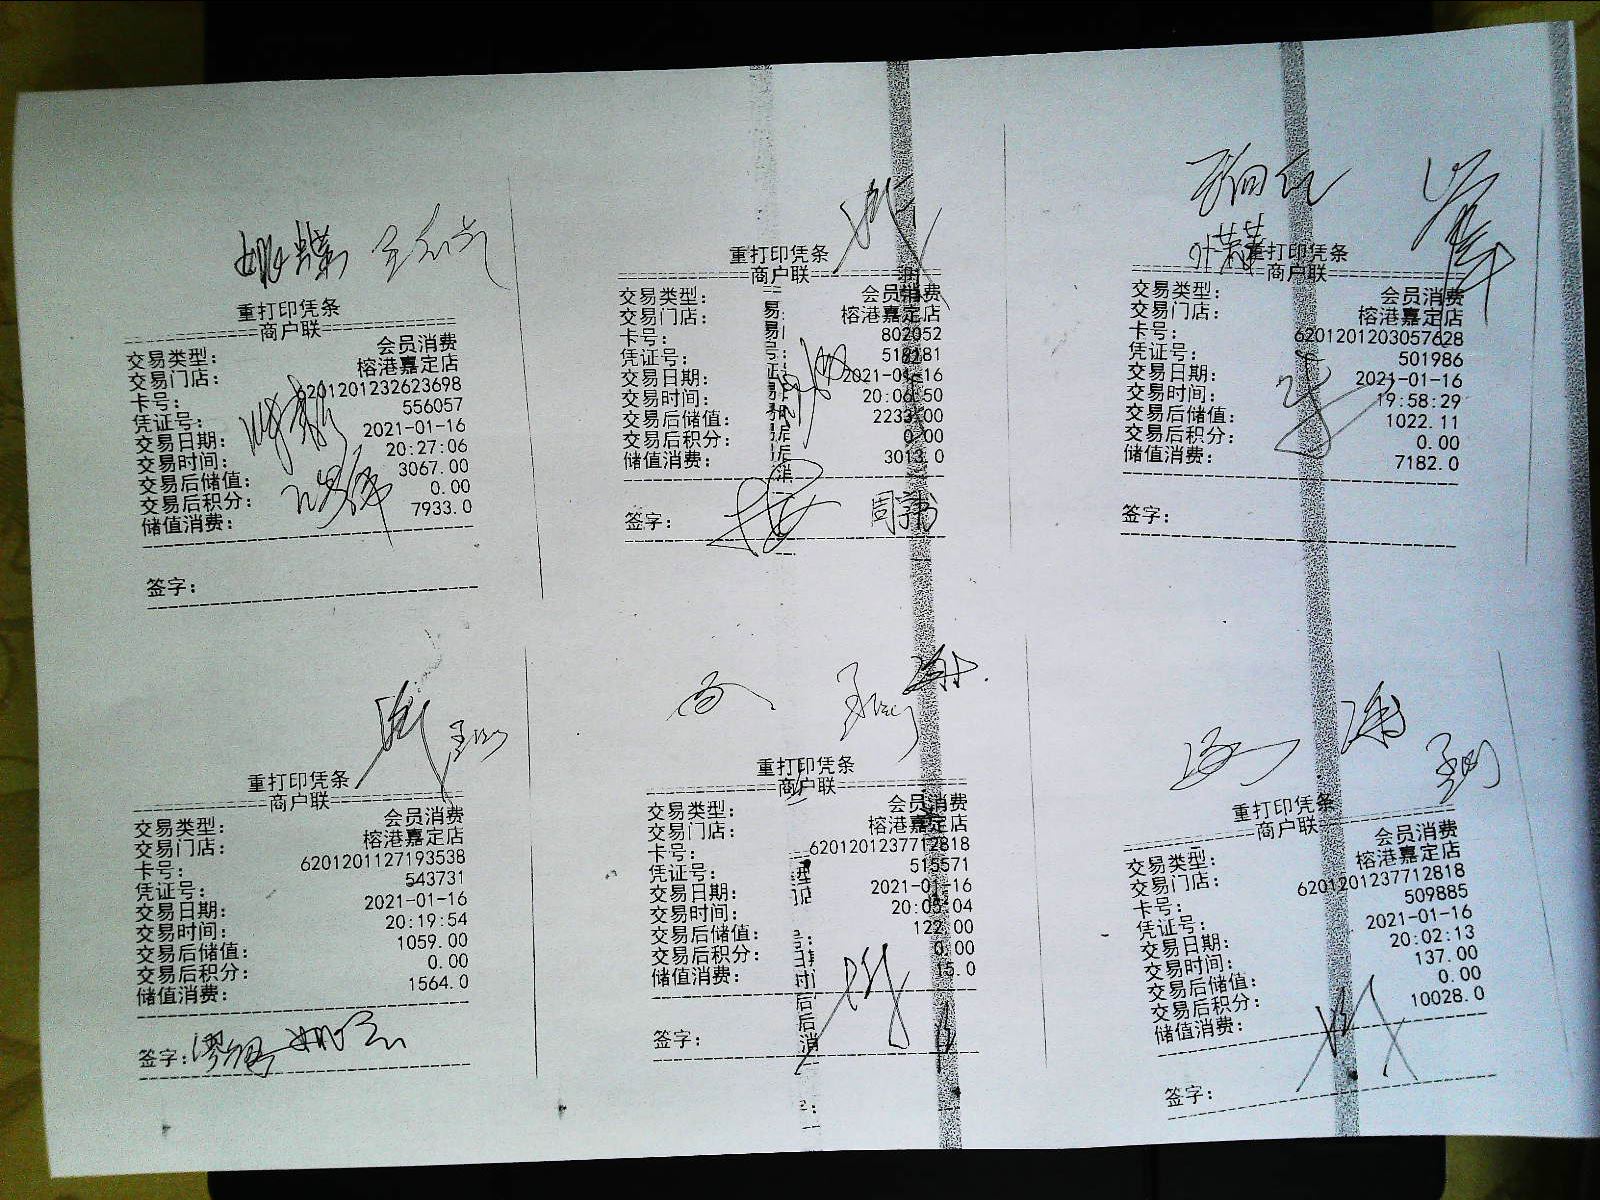 重打印凭条
商户联
交易类型： 会员消费
交易门店： 榕港嘉定店
卡号： 6201201232623698
凭证号： 556057
交易日期： 2021-01-16
交易时间： 20:27:06
交易后储值： 3067.00
交易后积分： 0.00
储值消费： 7933.0
签字：
重打印凭条
商户联
交易类型： 会员消费
交易门店： 榕港嘉定店
卡号： 802052
凭证号： 518281
交易日期： 2021-01-16
交易时间： 20:06:50
交易后储值： 2233.00
交易后积分： 0.00
储值消费： 3013.0
签字：
重打印凭条
商户联
交易类型： 会员消费
交易门店： 榕港嘉定店
卡号： 6201201203057628
凭证号： 501986
交易日期： 2021-01-16
交易时间： 19:58:29
交易后储值： 1022.11
交易后积分： 0.00
储值消费： 7182.0
签字：
重打印凭条
商户联
交易类型： 会员消费
交易门店： 榕港嘉定店
卡号： 6201201127193538
凭证号： 543731
交易日期： 2021-01-16
交易时间： 20:19:54
交易后储值： 1059.00
交易后积分： 0.00
储值消费： 1564.0
签字：
重打印凭条
商户联
交易类型： 会员消费
交易门店： 榕港嘉定店
卡号： 6201201237712818
凭证号： 515571
交易日期： 2021-01-16
交易时间： 20:05:04
交易后储值： 122.00
交易后积分： 0.00
储值消费： 15.0
签字：
重打印凭条
商户联
交易类型： 会员消费
交易门店： 榕港嘉定店
卡号： 6201201237712818
凭证号： 509885
交易日期： 2021-01-16
交易时间： 20:02:13
交易后储值： 137.00
交易后积分： 0.00
储值消费： 10028.0
签字：